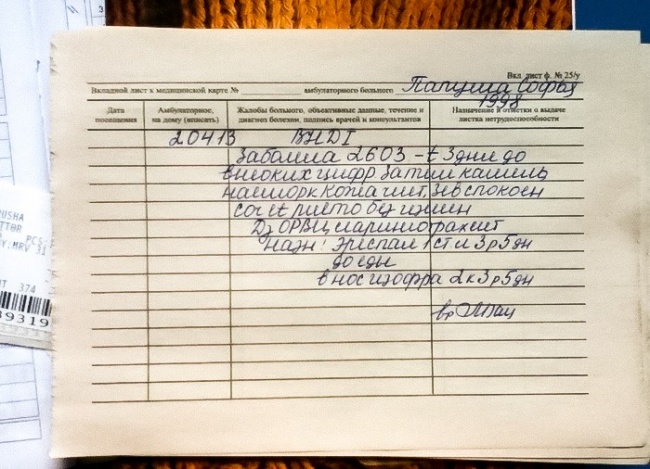 Вкл. лист ф. № 25/у
Вкладной лист к медицинской карте № амбулаторного больного Папуша Софья
1998
Дата посещения Амбулаторное, на дому (вписать) Жалобы больного, объективные данные, течение и диагноз болезни, подпись врачей и консультантов Назначения и отметки о выдаче листка нетрудоспособности
20413 ВНДІ
Заболела 2603 - t 3 дня до
высоких цифр Затем кашель
насморк Кожа чист, Зев спокоен
Cor et
Dz ОРВИ
Назн: Эреспал 1 ст л 3 р 5 дн
до еды
в нос изофра 2 к 3 р 5 дн
вр
USHA
TTOR
PCS
Y:MRV 31
374
39319